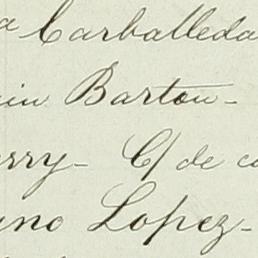 a Carballeda
in Barton -
rry - C/ de co
no Lopez -